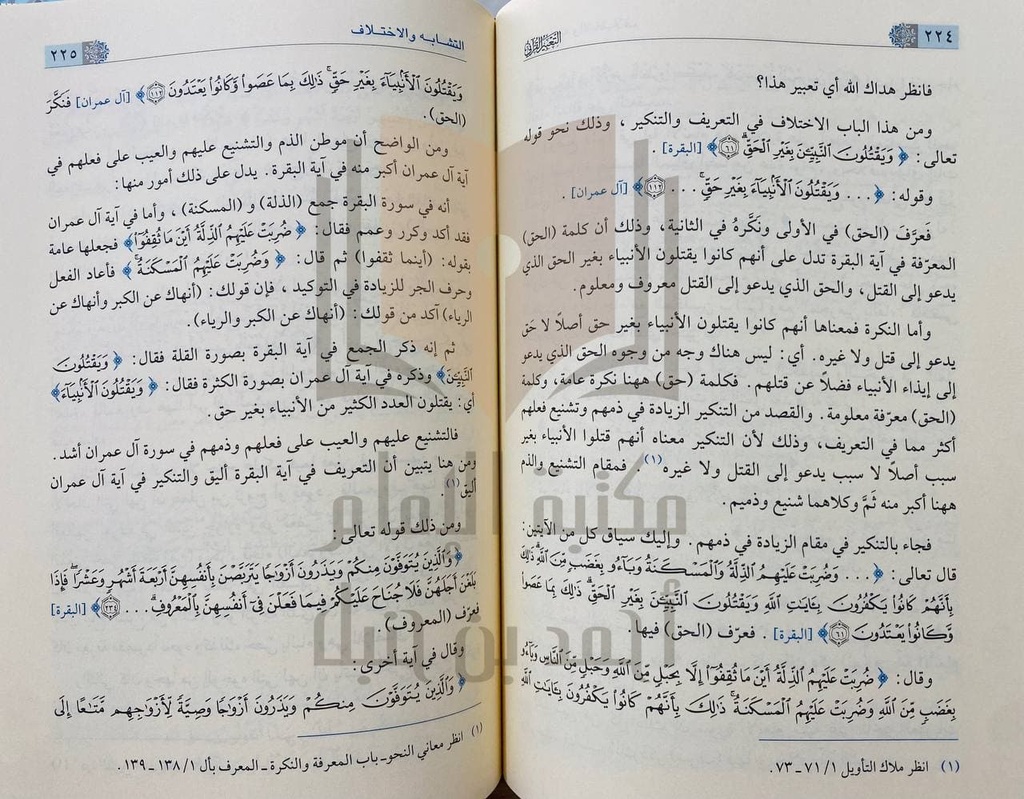 ٢٢٤
التعبير القرآني
فانظر هداك الله أي تعبير هذا؟
ومن هذا الباب الاختلاف في التعريف والتنكير ، وذلك نحو قوله
تعالى: ﴿ وَيَقْتُلُونَ النَّبِيِّينَ بِغَيْرِ الْحَقِّ ۗ ۝٦١ ﴾ [البقرة] .
وقوله: ﴿ ... وَيَقْتُلُونَ الْأَنْبِيَاءَ بِغَيْرِ حَقٍّ ۚ ... ۝١١٢ ﴾ [آل عمران] .
فَعرَّفَ (الحق) في الأولى ونَكَّرهُ في الثانية، وذلك أن كلمة (الحق)
المعرّفة في آية البقرة تدل على أنهم كانوا يقتلون الأنبياء بغير الحق الذي
يدعو إلى القتل، والحق الذي يدعو إلى القتل معروف ومعلوم.
وأما النكرة فمعناها أنهم كانوا يقتلون الأنبياء بغير حق أصلاً لا حَق
يدعو إلى قتل ولا غيره. أي: ليس هناك وجه من وجوه الحق الذي يدعو
إلى إيذاء الأنبياء فضلاً عن قتلهم. فكلمة (حق) ههنا نكرة عامة، وكلمة
(الحق) معرّفة معلومة. والقصد من التنكير الزيادة في ذمهم وتشنيع فعلهم
أكثر مما في التعريف، وذلك لأن التنكير معناه أنهم قتلوا الأنبياء بغير
سبب أصلاً لا سبب يدعو إلى القتل ولا غيره(١). فمقام التشنيع والذم
ههنا أكبر منه ثَمَّ وكلاهما شنيع وذميم.
فجاء بالتنكير في مقام الزيادة في ذمهم. وإليك سياق كل من الآيتين:
قال تعالى: ﴿ ... وَضُرِبَتْ عَلَيْهِمُ الذِّلَّةُ وَالْمَسْكَنَةُ وَبَاءُو بِغَضَبٍ مِّنَ اللَّهِ ۗ ذَٰلِكَ
بِأَنَّهُمْ كَانُوا يَكْفُرُونَ بِآيَاتِ اللَّهِ وَيَقْتُلُونَ النَّبِيِّينَ بِغَيْرِ الْحَقِّ ۗ ذَٰلِكَ بِمَا عَصَوا
وَّكَانُوا يَعْتَدُونَ ۝٦١ ﴾ [البقرة] . فعرّف (الحق) فيها.
وقال: ﴿ ضُرِبَتْ عَلَيْهِمُ الذِّلَّةُ أَيْنَ مَا ثُقِفُوا إِلَّا بِحَبْلٍ مِّنَ اللَّهِ وَحَبْلٍ مِّنَ النَّاسِ وَبَاءُو
بِغَضَبٍ مِّنَ اللَّهِ وَضُرِبَتْ عَلَيْهِمُ الْمَسْكَنَةُ ۚ ذَٰلِكَ بِأَنَّهُمْ كَانُوا يَكْفُرُونَ بِآيَاتِ اللَّهِ
(١) انظر ملاك التأويل ٧١/١ ـ ٧٣.
التشابه والاختلاف
٢٢٥
وَيَقْتُلُونَ الْأَنْبِيَاءَ بِغَيْرِ حَقٍّ ۚ ذَٰلِكَ بِمَا عَصَوا وَّكَانُوا يَعْتَدُونَ ۝١١٢ ﴾ [آل عمران] فَنكَّرَ
(الحق).
ومن الواضح أن موطن الذم والتشنيع عليهم والعيب على فعلهم في
آية آل عمران أكبر منه في آية البقرة. يدل على ذلك أمور منها:
أنه في سورة البقرة جمع (الذلة) و (المسكنة)، وأما في آية آل عمران
فقد أكد وكرر وعمم فقال: ﴿ ضُرِبَتْ عَلَيْهِمُ الذِّلَّةُ أَيْنَ مَا ثُقِفُوا ﴾ فجعلها عامة
بقوله: (أينما ثقفوا) ثم قال: ﴿ وَضُرِبَتْ عَلَيْهِمُ الْمَسْكَنَةُ ﴾ فأعاد الفعل
وحرف الجر للزيادة في التوكيد ، فإن قولك: (أنهاك عن الكبر وأنهاك عن
الرياء) آكد من قولك: (أنهاك عن الكبر والرياء).
ثم إنه ذكر الجمع في آية البقرة بصورة القلة فقال: ﴿ وَيَقْتُلُونَ
النَّبِيِّينَ ﴾ وذكره في آية آل عمران بصورة الكثرة فقال: ﴿ وَيَقْتُلُونَ الْأَنْبِيَاءَ ﴾
أي: يقتلون العدد الكثير من الأنبياء بغير حق.
فالتشنيع عليهم والعيب على فعلهم وذمهم في سورة آل عمران أشد.
ومن هنا يتبين أن التعريف في آية البقرة أليق والتنكير في آية آل عمران
أليق(١).
ومن ذلك قوله تعالى:
﴿ وَالَّذِينَ يُتَوَفَّوْنَ مِنكُمْ وَيَذَرُونَ أَزْوَاجًا يَتَرَبَّصْنَ بِأَنفُسِهِنَّ أَرْبَعَةَ أَشْهُرٍ وَعَشْرًا ۖ فَإِذَا
بَلَغْنَ أَجَلَهُنَّ فَلَا جُنَاحَ عَلَيْكُمْ فِيمَا فَعَلْنَ فِي أَنفُسِهِنَّ بِالْمَعْرُوفِ ۗ ... ۝٢٣٤ ﴾ [البقرة]
فعرّف (المعروف).
وقال في آية أخرى:
﴿ وَالَّذِينَ يُتَوَفَّوْنَ مِنكُمْ وَيَذَرُونَ أَزْوَاجًا وَصِيَّةً لِّأَزْوَاجِهِم مَّتَاعًا إِلَى
(١) انظر معاني النحو ـ باب المعرفة والنكرة ـ المعرف بأل ١٣٨/١ ـ ١٣٩.
مكتبة الإمام
أحمد بن